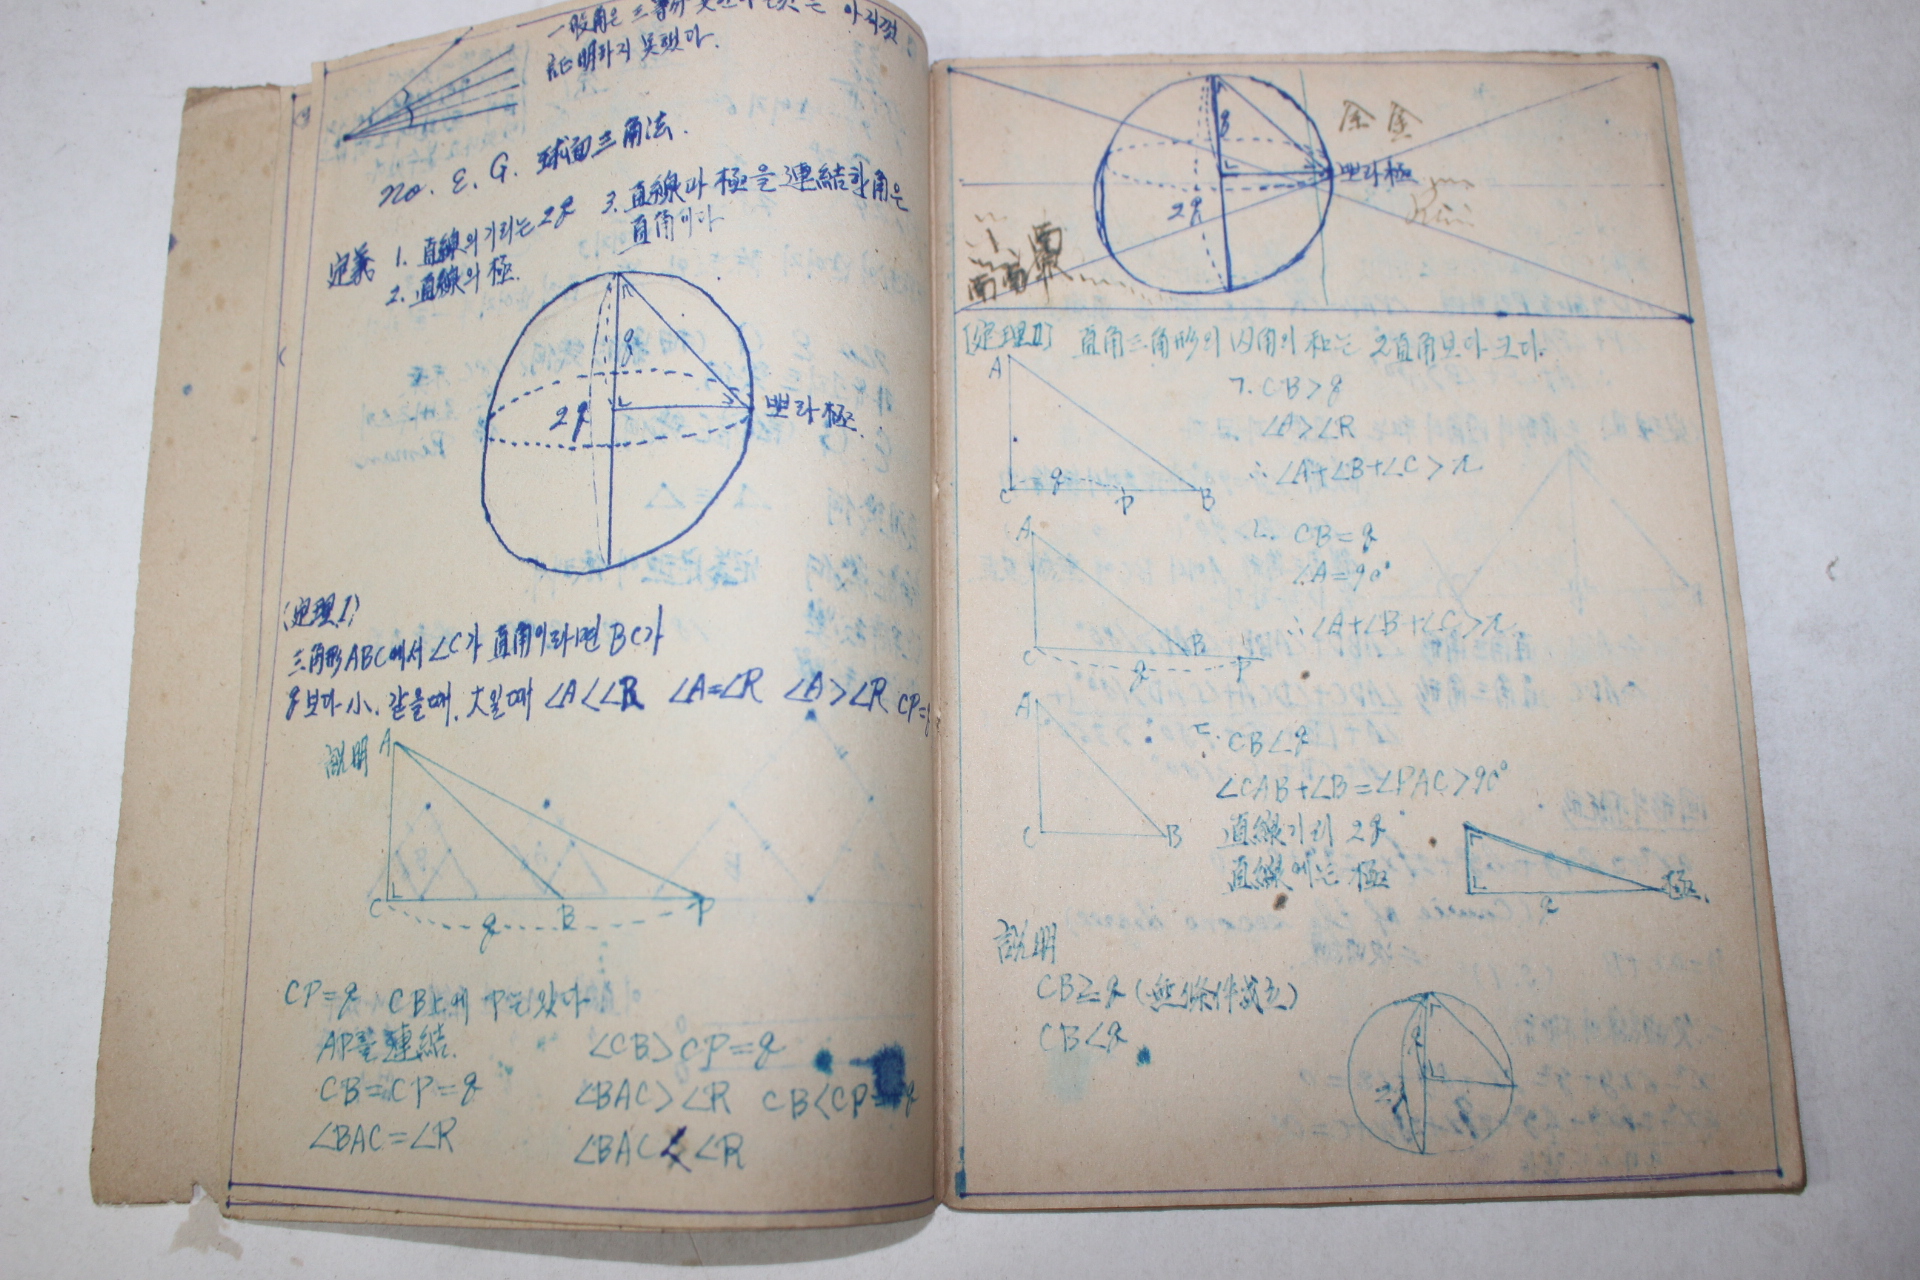 一般角은 三等分 못한다는 것은 아직껏
証明하지 못했다.
no. E. G. 球面三角法.
定義 1. 直線의 거리는 2q
2. 直線의 極.
3. 直線과 極을 連結한 角은
直角이다
q
2q
뽀라極.
(定理I)
三角形ABC에서 ∠C가 直角이라면 BC가
q보다 小, 같을때, 大일때 ∠A<∠R ∠A=∠R ∠A>∠R CP=q
說明
A
C
q
B
P
CP=q CB上에 P는 있다
AP를 連結.
CB=CP=q
∠BAC=∠R
∠CB>CP=q
∠BAC>∠R CB<CP=q
∠BAC<∠R
q
2q
뽀라極
余 金
南
南南
[定理II] 直角三角形의 內角의 和는 2直角보다 크다.
A
C
q
P
B
ㄱ. CB>q
∠A>∠R
∴ ∠A+∠B+∠C>π
A
C
q
B
P
ㄴ. CB=q
∠A=90°
∴ ∠A+∠B+∠C>π
A
C
B
ㄷ. CB<q
∠CAB+∠B=∠PAC>90°
直線거리 2q
直線에는 極
q
極.
說明
CB≥q (無條件成立)
CB<q
q
2q